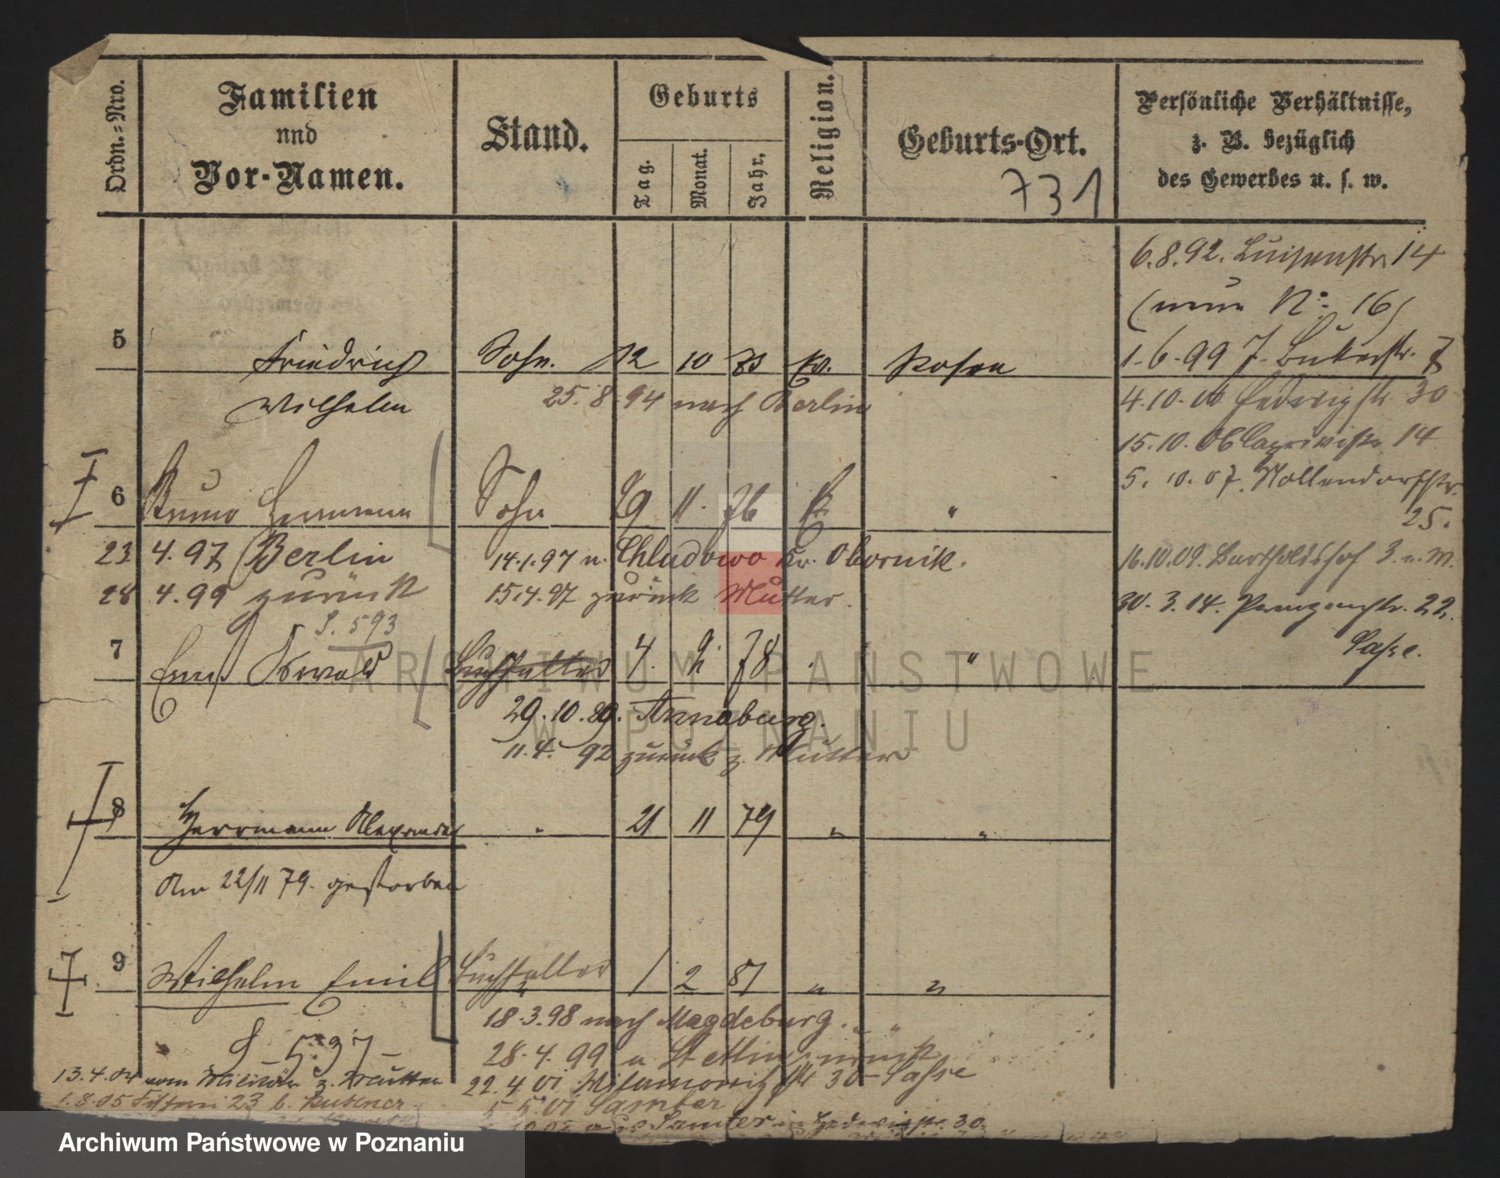 Ordn.=Nro.
Familien
nnd
Vor-Namen.
Stand.
Geburts
Tag.
Monat.
Jahr.
Religion.
Geburts-Ort.
731
Persönliche Verhältnisse,
z. B. bezüglich
des Gewerbes u. s. w.
6.8.92. Luisenstr. 14
(neue No. 16)
1.6.99 Bukerstr.
4.10.00 Hedwigstr. 30
15.10.06 Caprivistr. 14
5.10.07. Nollendorfstr.
25.
16.10.09. Bartholdshof 3. u. M.
30.3.14. Prinzenstr. 22.
Sasse.
5
Friedrich Sohn. 12 10 Ev. Posen
Wilhelm 25.8.94 nach Berlin
6
Bruno Hermann Sohn 29 11. 76 E. "
23 4.97 Berlin 14.1.97 n. Chludowo Kr. Obornik.
28 4.99 zurück 15.4.97 zurück Mutter.
S. 593
7
Emil Oswald Buchhalter 4. 9. 78 "
29.10.89. Annaburg.
11.4.92 zurück z. Mutter
8
Herrmann Alexander " 21 11 79 " "
Am 22/11 79. gestorben
9
Wilhelm Emil Buchhalter 1 2 81 " "
18.3.98 nach Magdeburg.
S 597
28.4.99 a. Stettin zurück
13.4.04 vom Militär z. Mutter
22.4.01 30 Sasse
5.5.01 Samter
1.8.05 23 b. Büttner
Samter Hedwigstr. 30.
ARCHIWUM PAŃSTWOWE
W POZNANIU
Archiwum Państwowe w Poznaniu